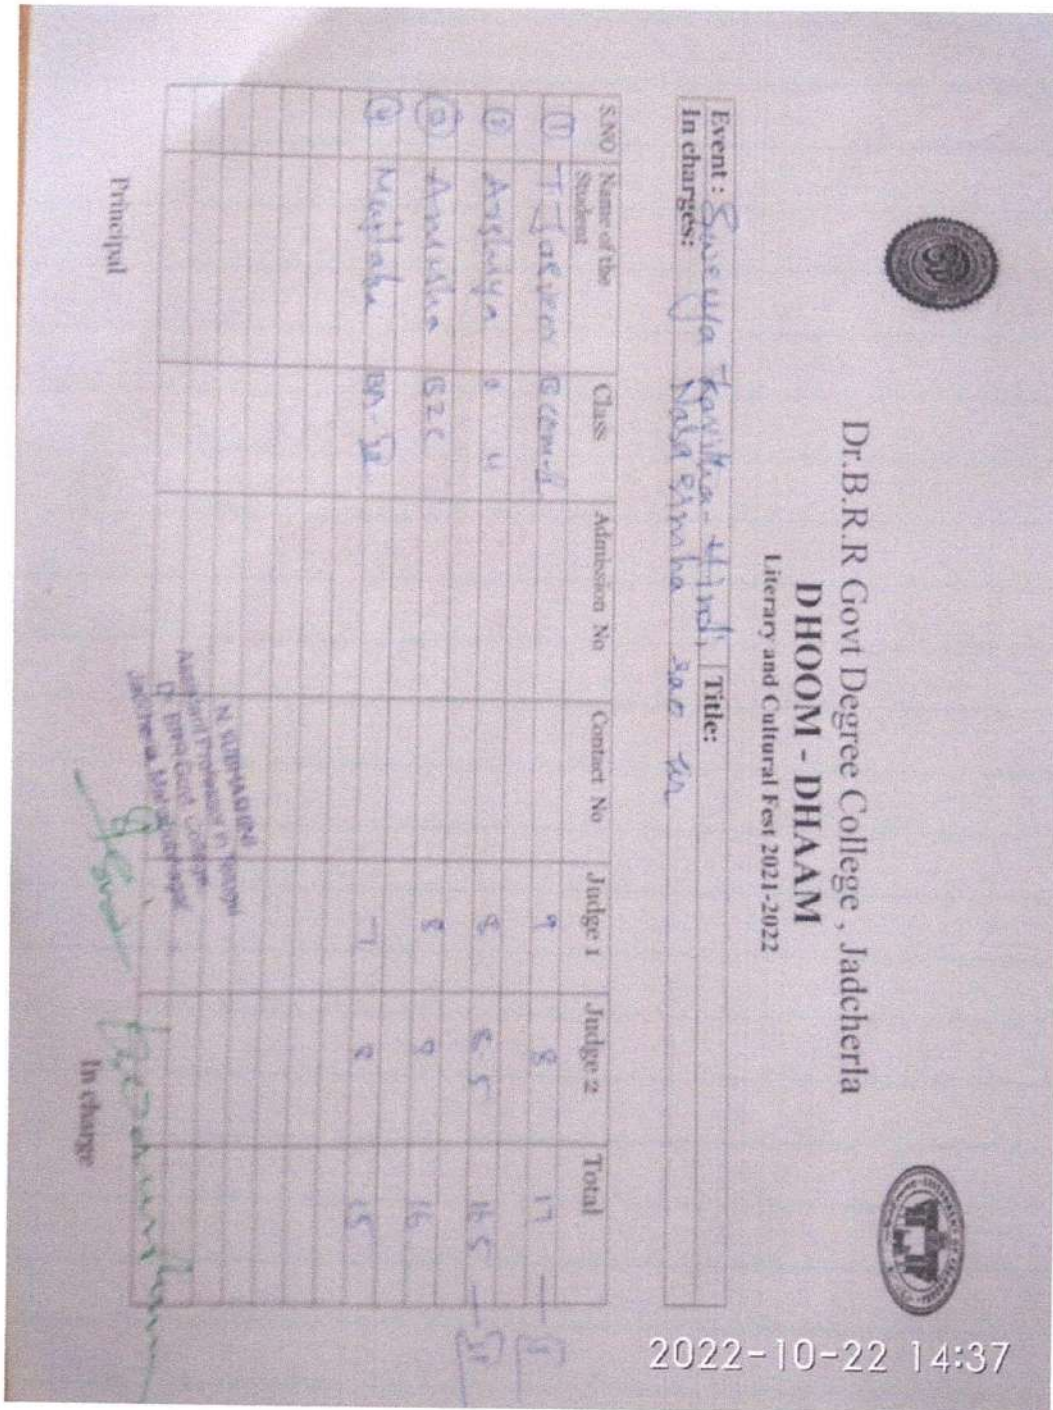 Dr.B.R.R Govt Degree College , Jadcherla
DHOOM - DHAAM
Literary and Cultural Fest 2021-2022
Event : Sweeya Kavitha - Hindi Title:
In charges: rao sir
S.NO Name of the Student Class Admission No Contact No Judge 1 Judge 2 Total
1 9 8 17 — I
2 8 8.5 16.5 — II
3 Anusha BZC 8 8 16
4 BA- 7 8 15
N. SUBHASHINI
Assistant Professor in Telugu
Dr. BRR Govt. College
Jadcherla, Mahabubnagar
Principal In charge
2022-10-22 14:37